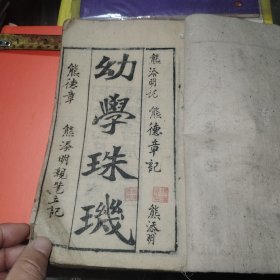 熊添明記
熊德章記
熊添明
幼學珠璣
熊德章
熊添明親筆立記